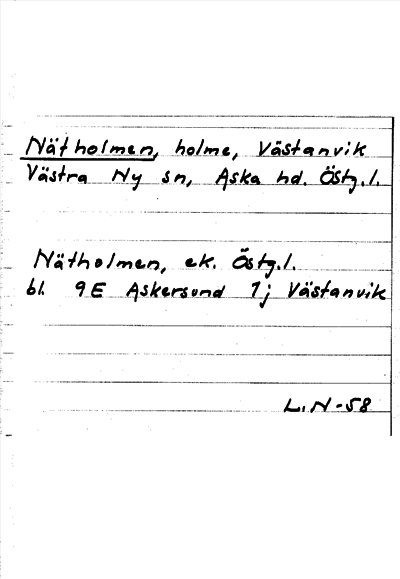 Nätholmen, holme, Västanvik
Västra Ny sn, Aska hd. Östg.l.
Nätholmen, ek. Östg.l.
bl. 9E Askersund 1j Västanvik
L.N-58